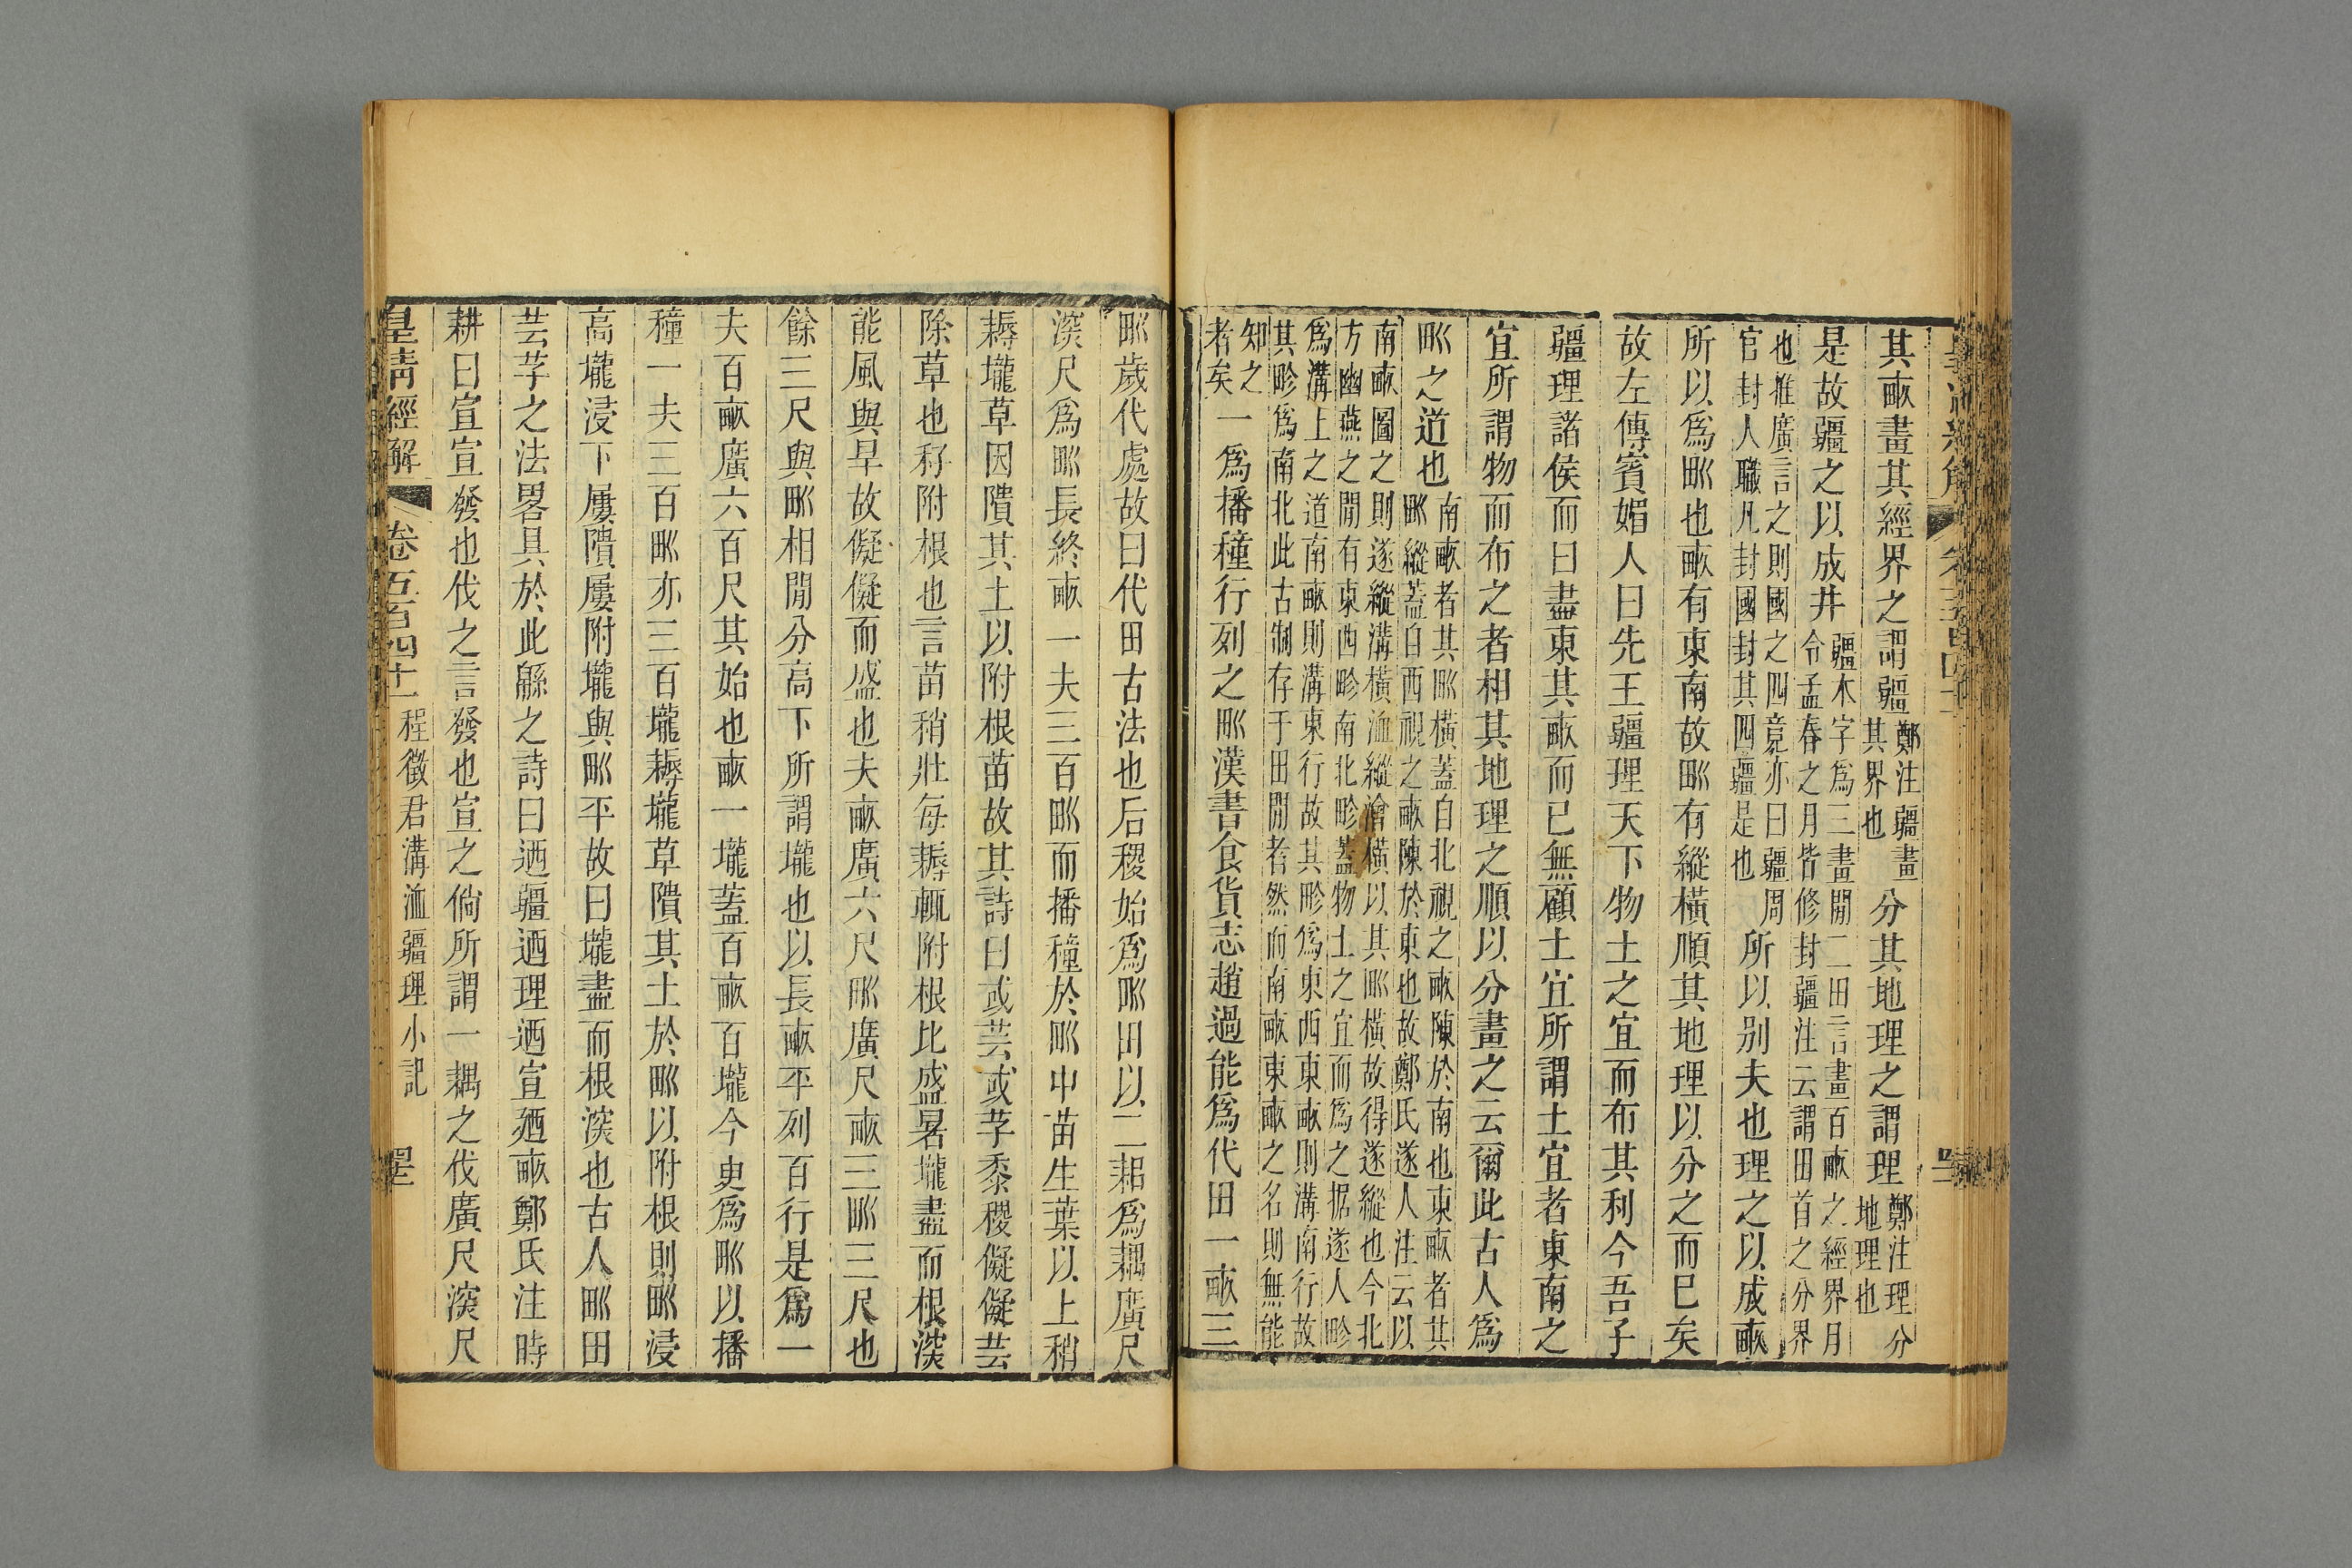 其畞畫其經界之謂疆鄭注疆畫其界也分其地理之謂理鄭注理分地理也
是故疆之以成井疆本字爲三畫閒二田言畫百畞之經界月令孟春之月皆修封疆注云謂田首之分界
也推廣言之則國之四竟亦曰疆周官封人職凡封國封其四疆是也所以別夫也理之以成畞
所以爲甽也畞有東南故甽有縱橫順其地理以分之而已矣
故左傳賓媚人曰先王疆理天下物土之宜而布其利今吾子
疆理諸侯而曰盡東其畞而已無顧土宜所謂土宜者東南之
宜所謂物而布之者相其地理之順以分畫之云爾此古人爲
甽之道也南畞者其甽橫蓋自北視之畞陳於南也東畞者其甽縱蓋自西視之畞陳於東也故鄭氏遂人注云以
南畞圖之則遂縱溝橫洫縱澮橫以其甽橫故得遂縱也今北方幽燕之閒有東西畛南北畛蓋物土之宜而爲之据遂人畛
爲溝上之道南畞則溝東行故其畛爲東西東畞則溝南行故其畛爲南北此古制存于田閒者然而南畞東畞之名則無能
知之者矣一爲播種行列之甽漢書食貨志趙過能爲代田一畞三
甽歲代處故曰代田古法也后稷始爲甽田以二耜爲耦廣尺
深尺爲甽長終畞一夫三百甽而播種於甽中苗生葉以上稍
耨壠草因隤其土以附根苗故其詩曰或芸或芓黍稷儗儗芸
除草也秄附根也言苗稍壯每耨輒附根比盛暑壠盡而根深
能風與旱故儗儗而盛也夫畞廣六尺甽廣尺畞三甽三尺也
餘三尺與甽相閒分高下所謂壠也以長畞平列百行是爲一
夫百畞廣六百尺其始也畞一壠蓋百畞百壠今更爲甽以播
種一夫三百甽亦三百壠耨壠草隤其土於甽以附根則甽浸
高壠浸下屢隤屢附壠與甽平故曰壠盡而根深也古人甽田
芸芓之法畧具於此緜之詩曰迺疆迺理迺宣迺畞鄭氏注時
耕曰宣宣發也伐之言發也宣之倘所謂一耦之伐廣尺深尺
皇清經解 卷五百四十一 程徵君溝洫疆理小記